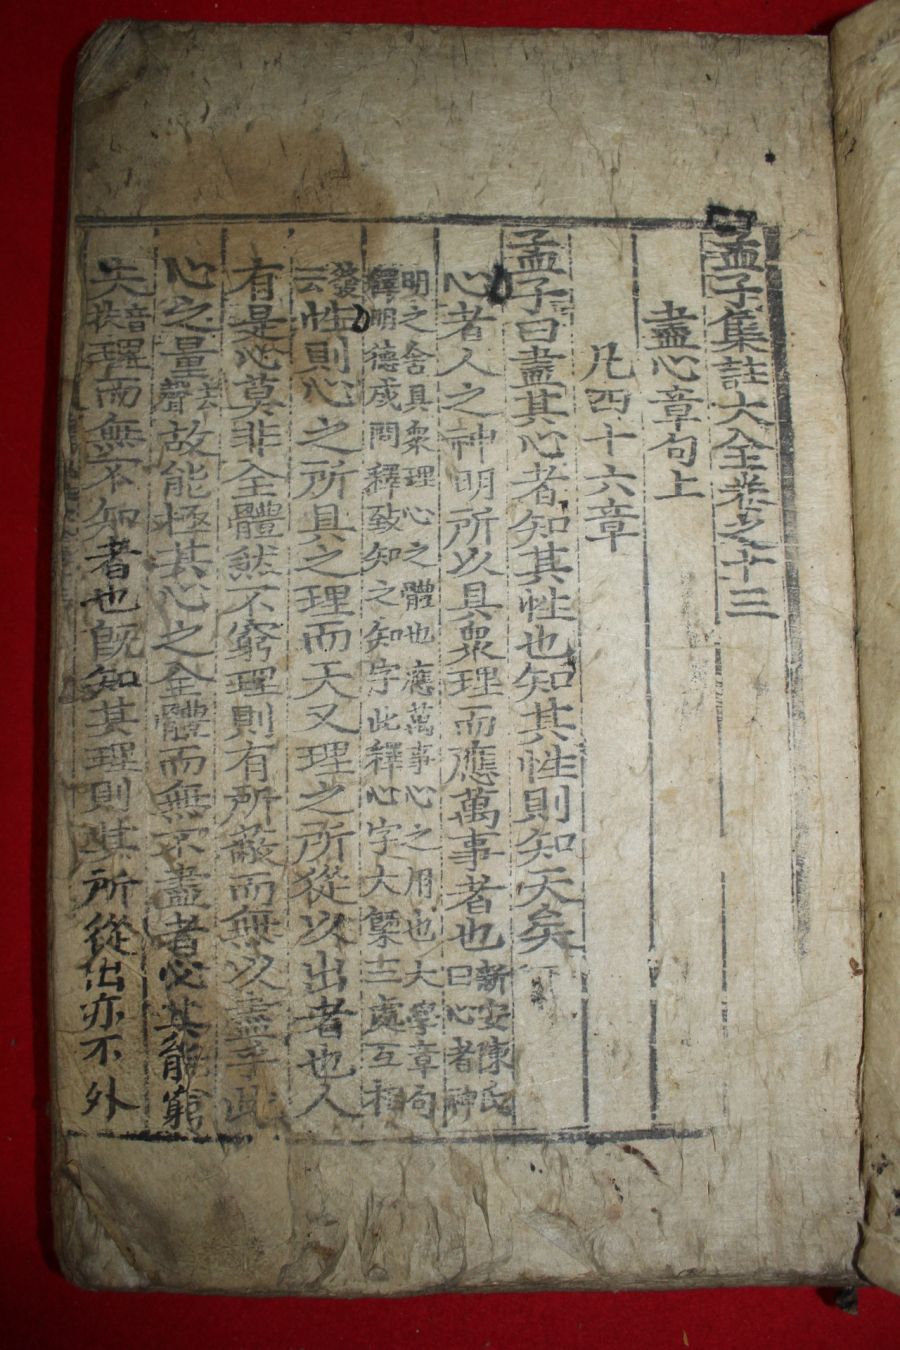 孟子集註大全卷之十三
盡心章句上
凡四十六章
孟子曰盡其心者知其性也知其性則知天矣
心者人之神明所以具衆理而應萬事者也新安陳氏曰心者神
明之舍具衆理心之體也應萬事心之用也大學章句
釋明德或問釋致知之知字此釋心字大槩三處互相
發云性則心之所具之理而天又理之所從以出者也人
有是心莫非全體然不窮理則有所蔽而無以盡乎此
心之量去聲故能極其心之全體而無不盡者必其能窮
夫音扶理而無不知者也旣知其理則其所從出亦不外